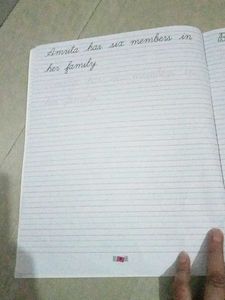 Amrita has six members in
her family